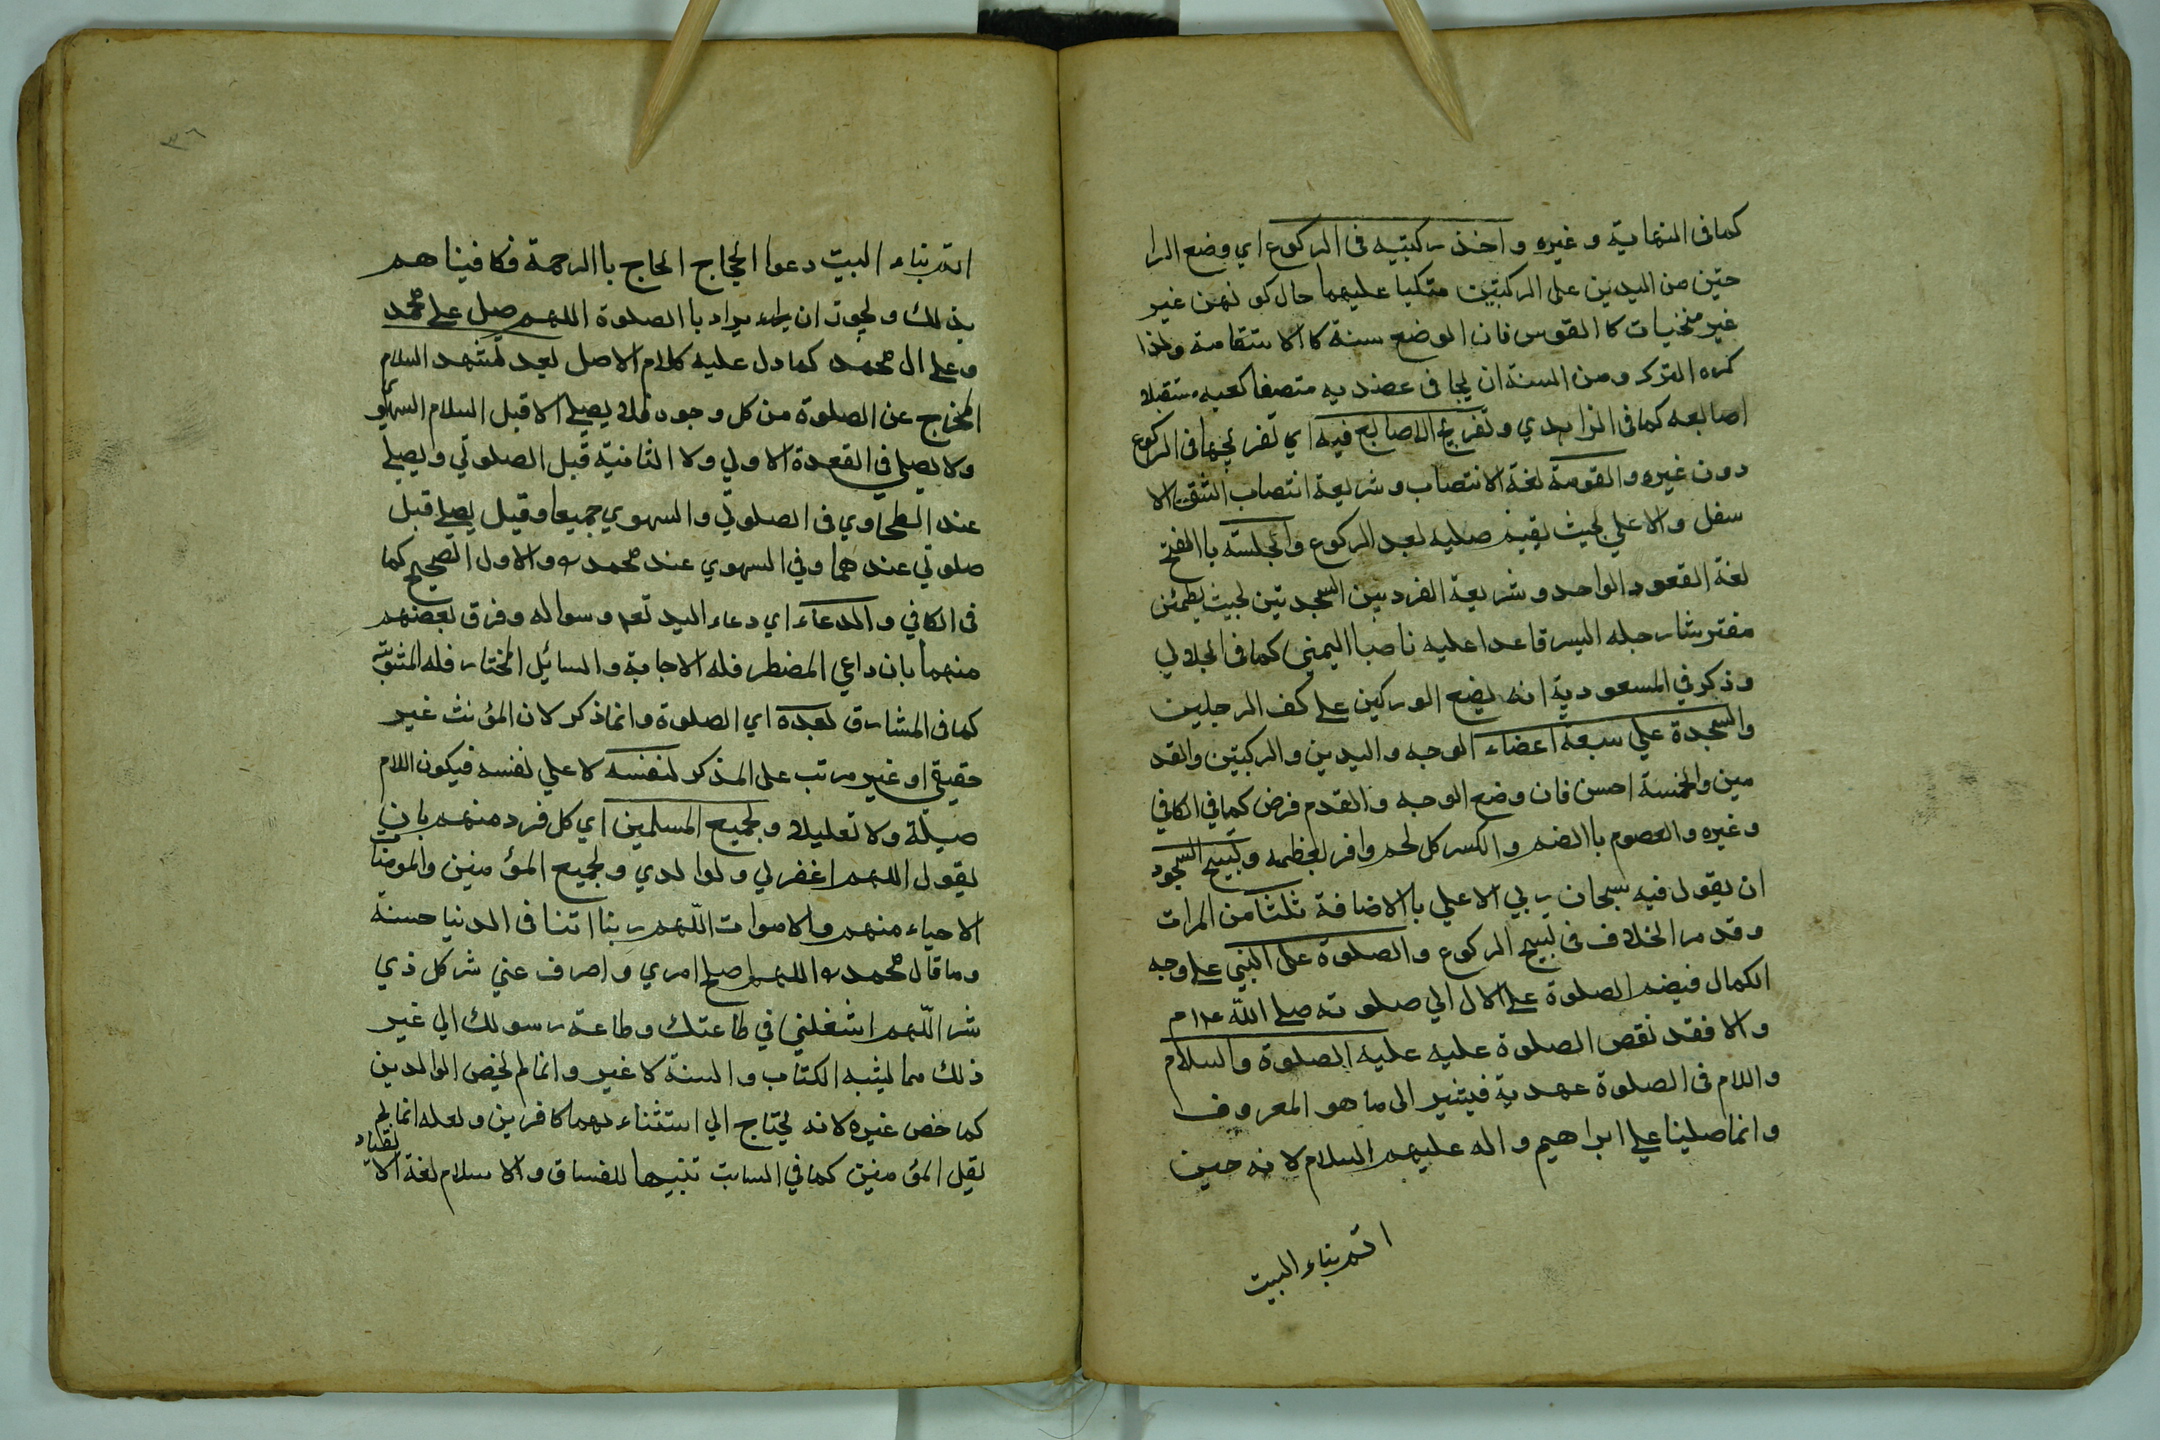 كمافى النهاية وغيره واخذ ركبتيه فى الركوع اي وضع الرا
حتين من اليدين على الركبتين متكيا عليهما حال كو نهن غير
غير منحنيات كا القوس فان الوضع سنة كا الاستقامة ولذا
كره الترك ومن السنة ان يجافى عضديه متصفا كعبيه مستقبلا
اصابعه كمافى الزاهدي وتفريج الاصابع فيه اي تفريجها فى الركوع
دون غيره والقومة لغة الانتصاب وشريعة انتصاب الشق الا
سفل والاعلي بحيث يقيم صلبه بعد الركوع والجلسة باالفتح
لغة القعود الواحد وشريعة الفرد بين السجدتين بحيث يطمئن
مفترشا رجله اليسر قاعدا عليه ناصبا اليمني كمافى الجلالي
وذكر في المسعودية انه يضع الوركين على كف الرجلين
والسجدة علي سبعة اعضاء الوجه واليدين والركبتين والقد
مين والخمسة احسن فان وضع الوجه والقدم فرض كمافي الكافي
وغيره والعصوم باالضم والكسر كل لحم وافر بعظمه وتسبيح السجود
ان يقول فيه سبحان ربي الاعلي باالاضافة ثلثا من المرات
وقد مر الخلاف فى تسبيح الركوع والصلوة على النبي على وجه
الكمال فيضم الصلوة على الال الي صلوته صلى الله عم
والا فقد نقص الصلوة عليه عليه الصلوة والسلام
واللام فى الصلوة عهدية فيشير الى ما هو المعروف
وانما صلينا على ابراهيم واله عليهم السلام لانه حين
اتم بناء البيت
٣٦
اتم بناء البيت دعوا الحجاج الحاج باالرحمة فكافيناهم
بذلك ويجوز ان يراد باالصلوة اللهم صل على محمد
وعلى ال محمد كما دل عليه كلام الاصل بعد تشهد السلام
المخرج عن الصلوة من كل وجوه فلا يصلي الا قبل السلام السهوي
ولا يصلي في القعدة الاولي ولا الثانية قبل الصلوتي ويصلي
عند الطحاوي فى الصلوتي والسهوي جميعا وقيل يصلي قبل
صلوتي عندهما وفي السهوي عند محمد والاول الصحيح كما
فى الكافي والدعاء اي دعاء اليد تعم وسواله وفرق بعضهم
منهما بان داعي المضطر فله الاجابة والسائل المختار فله المثوبة
كمافى المشارق بعده اي الصلوة وانما ذكر لان المؤنث غير
حقيقي او غير مرتب على المذكر لنفسه لا على نفسه فيكون اللام
صلة ولا تعليلا ولجميع المسلمين اي كل فرد منهم بان
يقول اللهم اغفر لي ولوالدي ولجميع المؤمنين والمومنات
الاحياء منهم والاموات اللهم ربنا اتنا فى الدنيا حسنة
وما قال محمد اللهم اصلح امري واصرف عني شر كل ذي
شر اللهم اشغلني في طاعتك وطاعة رسولك الي غير
ذلك مما يثبه الكتاب والسنة لا غير وانما لم يخص الوالدين
كما خص غيره لانه يحتاج الي استثناء بهما كافرين ولعله انما لم
يقل المؤمنين كمافي السابق تنبيها للفساق والاسلام لغة الانقياد